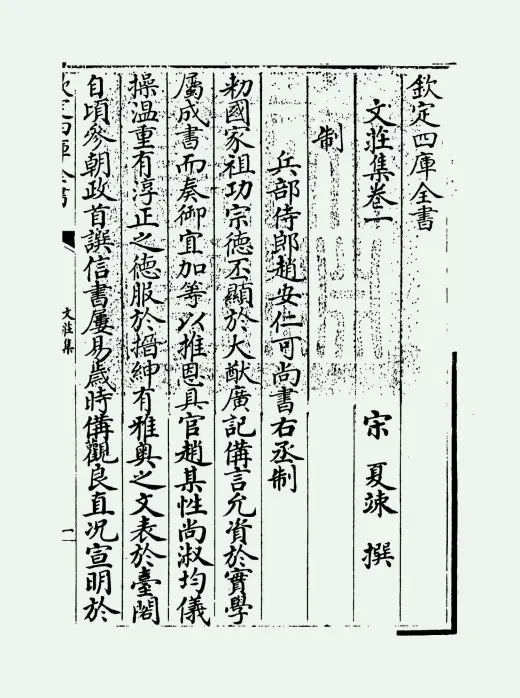 欽定四庫全書
文莊集卷一
宋 夏竦 撰
制
兵部侍郎趙安仁可尚書右丞制
勑國家祖功宗德丕顯於大猷廣記備言允資於實學
屬成書而奏御宜加等以推恩具官趙某性尚淑均儀
操溫重有淳正之德服於搢紳有雅奥之文表於臺閣
自頃參朝政首譔信書屢易歲時備觀良直况宣明於
欽定四庫全書
文莊集
一